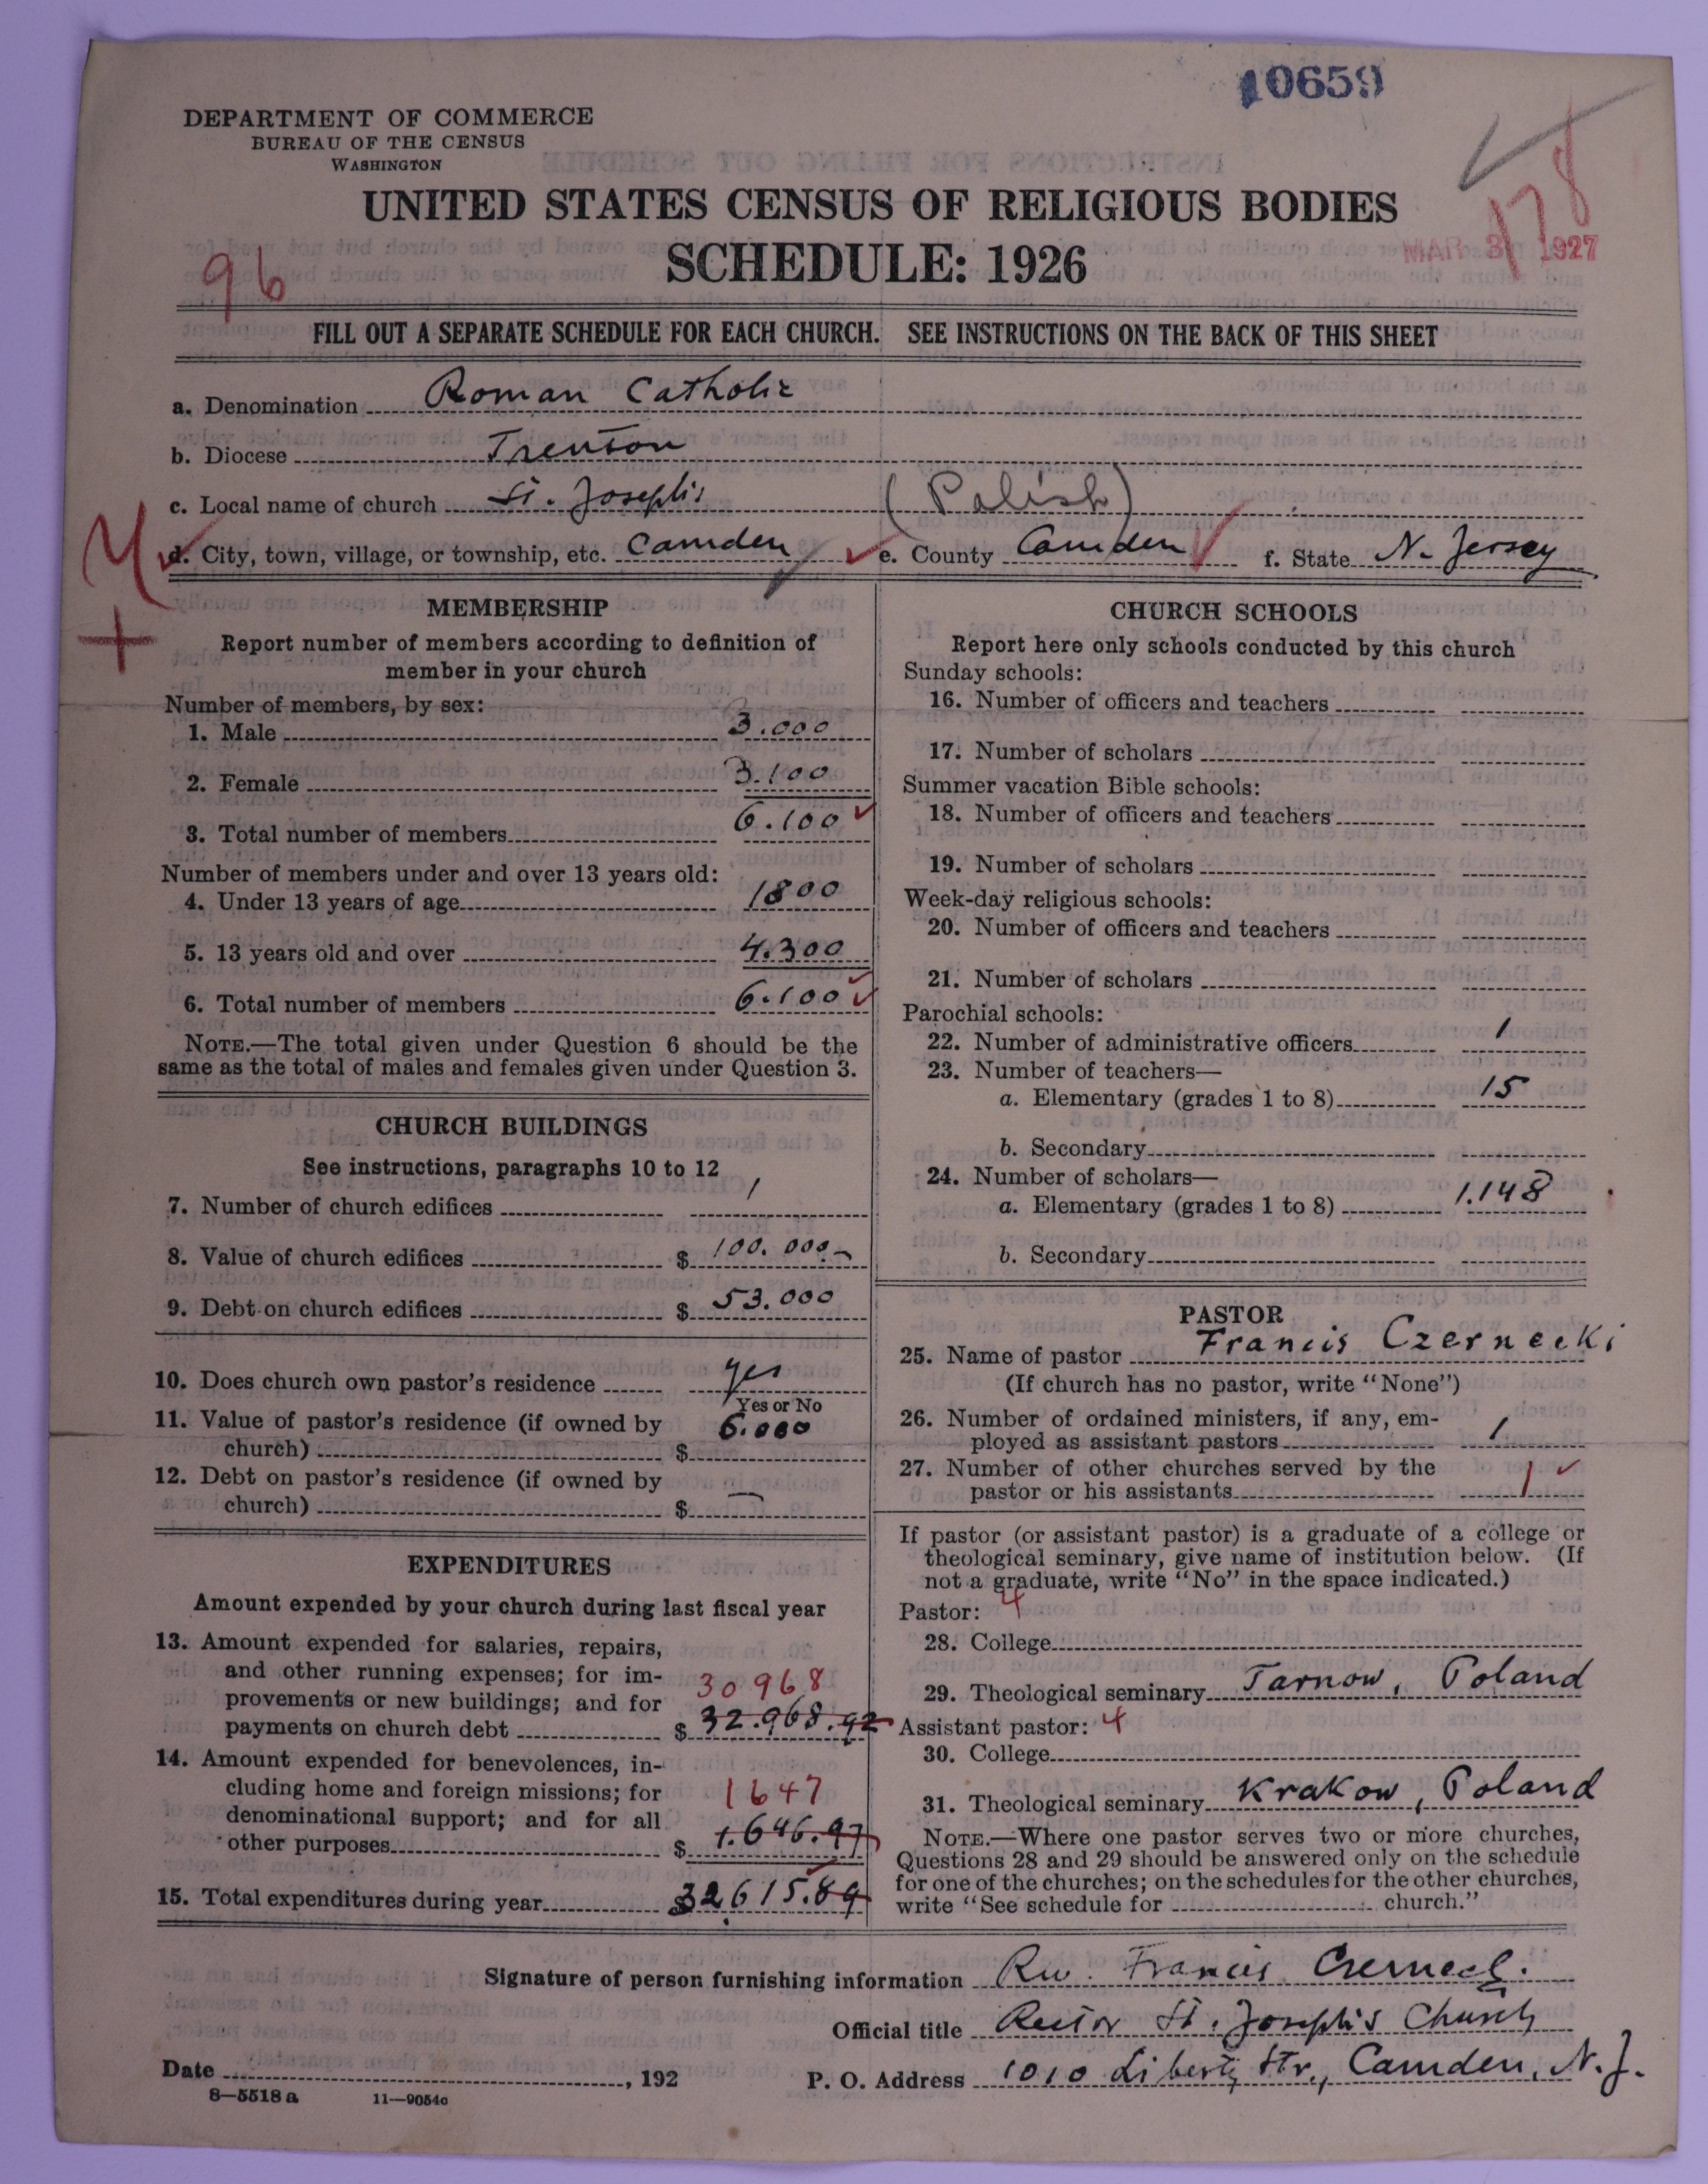 10659
DEPARTMENT OF COMMERCE
BUREAU OF THE CENSUS
WASHINGTON
UNITED STATES CENSUS OF RELIGIOUS BODIES
SCHEDULE: 1926
178
MAR 3 1927
96
FILL OUT A SEPARATE SCHEDULE FOR EACH CHURCH. SEE INSTRUCTIONS ON THE BACK OF THIS SHEET
a. Denomination Roman Catholic
b. Diocese Trenton
c. Local name of church St. Joseph's (Polish)
d. City, town, village, or township, etc. Camden e. County Camden f. State N. Jersey
MEMBERSHIP
Report number of members according to definition of
member in your church
Number of members, by sex:
1. Male 3.000
2. Female 3.100
3. Total number of members 6.100
Number of members under and over 13 years old:
4. Under 13 years of age 1800
5. 13 years old and over 4.300
6. Total number of members 6.100
NOTE.—The total given under Question 6 should be the
same as the total of males and females given under Question 3.
CHURCH BUILDINGS
See instructions, paragraphs 10 to 12
7. Number of church edifices 1
8. Value of church edifices $ 100.000-
9. Debt on church edifices $ 53.000
10. Does church own pastor's residence yes
Yes or No
11. Value of pastor's residence (if owned by 6.000
church) $
12. Debt on pastor's residence (if owned by
church) $ —
EXPENDITURES
Amount expended by your church during last fiscal year
13. Amount expended for salaries, repairs,
and other running expenses; for im- 30968
provements or new buildings; and for
payments on church debt $ 32.968.92
14. Amount expended for benevolences, in-
cluding home and foreign missions; for 1647
denominational support; and for all
other purposes $ 1.646.97
15. Total expenditures during year 32615.89
CHURCH SCHOOLS
Report here only schools conducted by this church
Sunday schools:
16. Number of officers and teachers
17. Number of scholars
Summer vacation Bible schools:
18. Number of officers and teachers
19. Number of scholars
Week-day religious schools:
20. Number of officers and teachers
21. Number of scholars
Parochial schools:
22. Number of administrative officers 1
23. Number of teachers—
a. Elementary (grades 1 to 8) 15
b. Secondary
24. Number of scholars—
a. Elementary (grades 1 to 8) 1.148
b. Secondary
PASTOR
25. Name of pastor Francis Czernecki
(If church has no pastor, write "None")
26. Number of ordained ministers, if any, em-
ployed as assistant pastors 1
27. Number of other churches served by the
pastor or his assistants 1
If pastor (or assistant pastor) is a graduate of a college or
theological seminary, give name of institution below. (If
not a graduate, write "No" in the space indicated.)
Pastor: 4
28. College
29. Theological seminary Tarnow, Poland
Assistant pastor: 4
30. College
31. Theological seminary Krakow, Poland
NOTE.—Where one pastor serves two or more churches,
Questions 28 and 29 should be answered only on the schedule
for one of the churches; on the schedules for the other churches,
write "See schedule for church."
Signature of person furnishing information Rev. Francis Czernecki.
Official title Rector St. Joseph's Church
Date , 192 P. O. Address 1010 Liberty Str., Camden, N.J.
8—5518 a 11—9054c